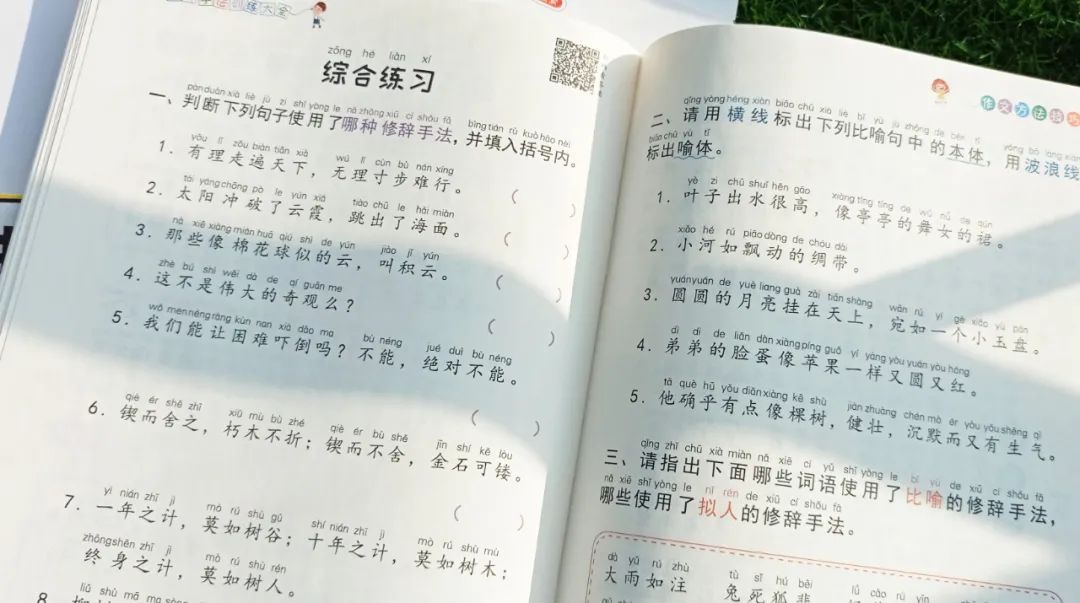 zōng hé liàn xí
综合练习
pàn duàn xià liè jù zi shǐ yòng le nǎ zhǒng xiū cí shǒu fǎ bìng tián rù kuò hào nèi
一、判断下列句子使用了哪种修辞手法，并填入括号内。
yǒu lǐ zǒu biàn tiān xià wú lǐ cùn bù nán xíng
1. 有理走遍天下，无理寸步难行。 ( )
tài yáng chōng pò le yún xiá tiào chū le hǎi miàn
2. 太阳冲破了云霞，跳出了海面。 ( )
nà xiē xiàng mián huā qiú shì de yún jiào jī yún
3. 那些像棉花球似的云，叫积云。 ( )
zhè bú shì wěi dà de qí guān me
4. 这不是伟大的奇观么？ ( )
wǒ men néng ràng kùn nan xià dǎo ma bù néng jué duì bù néng
5. 我们能让困难吓倒吗？不能，绝对不能。
( )
qiè ér shě zhī xiǔ mù bù zhé qiè ér bù shě jīn shí kě lòu
6. 锲而舍之，朽木不折；锲而不舍，金石可镂。
( )
yì nián zhī jì mò rú shù gǔ shí nián zhī jì mò rú shù mù
7. 一年之计，莫如树谷；十年之计，莫如树木；
zhōng shēn zhī jì mò rú shù rén
终身之计，莫如树人。
8.
作文方法技巧
qǐng yòng héng xiàn biāo chū xià liè bǐ yù jù zhōng de běn tǐ yòng bō làng xiàn
二、请用横线标出下列比喻句中的本体，用波浪线
biāo chū yù tǐ
标出喻体。
yè zi chū shuǐ hěn gāo xiàng tíng tíng de wǔ nǚ de qún
1. 叶子出水很高，像亭亭的舞女的裙。
xiǎo hé rú piāo dòng de chóu dài
2. 小河如飘动的绸带。
yuán yuán de yuè liang guà zài tiān shàng wǎn rú yí gè xiǎo yù pán
3. 圆圆的月亮挂在天上，宛如一个小玉盘。
dì di de liǎn dàn xiàng píng guǒ yí yàng yòu yuán yòu hóng
4. 弟弟的脸蛋像苹果一样又圆又红。
tā què hū yǒu diǎn xiàng kē shù jiàn zhuàng chén mò ér yòu yǒu shēng qì
5. 他确乎有点像棵树，健壮，沉默而又有生气。
qǐng zhǐ chū xià miàn nǎ xiē cí yǔ shǐ yòng le bǐ yù de xiū cí shǒu fǎ
三、请指出下面哪些词语使用了比喻的修辞手法，
nǎ xiē shǐ yòng le nǐ rén de xiū cí shǒu fǎ
哪些使用了拟人的修辞手法。
dà yǔ rú zhù tù sǐ hú bēi
大雨如注 兔死狐悲